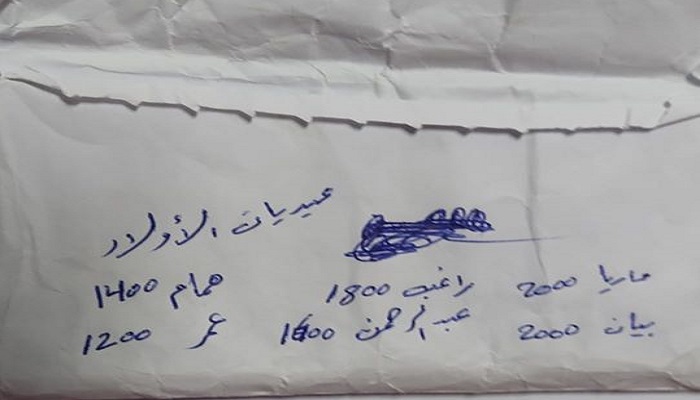 عيديات الأولاد
ماريا 2000 راغب 1800 همام 1400
بيان 2000 عبد الرحمن 1600 عمر 1200